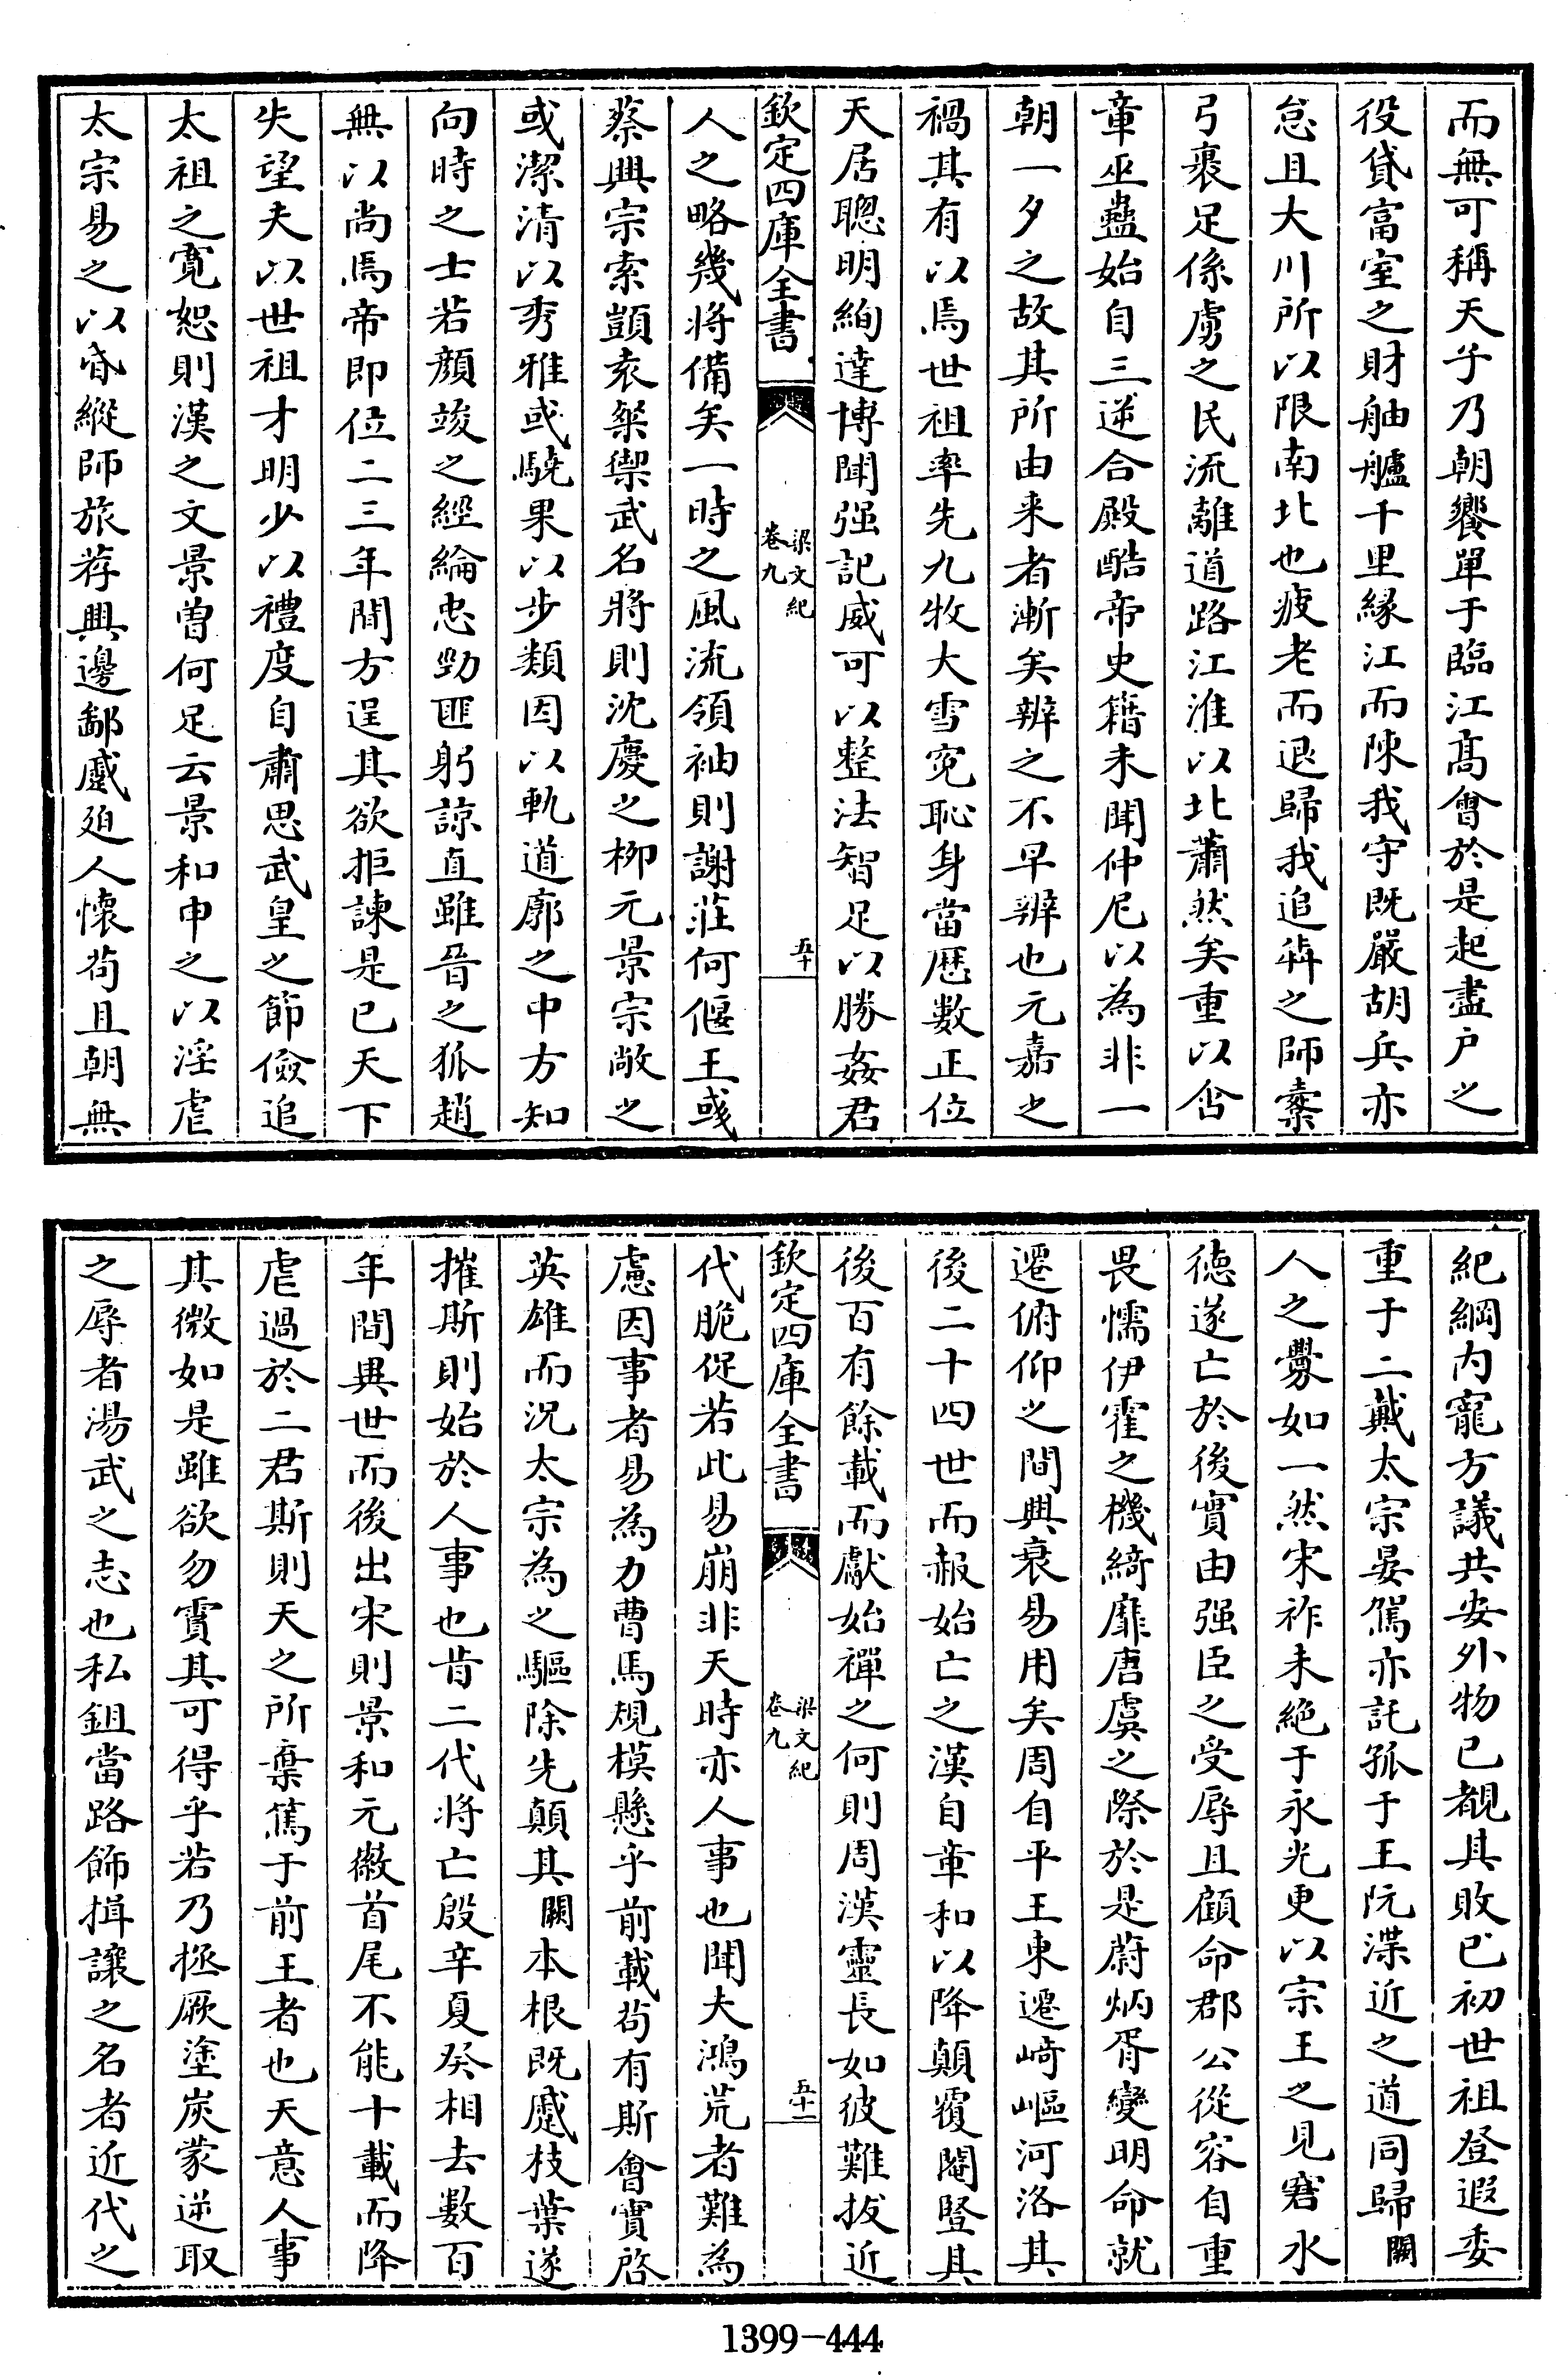 而無可稱天子乃朝饗單于臨江髙會於是起盡户之
役貸富室之財舳艫千里緣江而陳我守既嚴胡兵亦
怠且大川所以限南北也疲老而退歸我追犇之師橐
弓裹足係虜之民流離道路江淮以北蕭然矣重以含
章巫蠱始自三逆合殿酷帝史籍未聞仲尼以為非一
朝一夕之故其所由来者漸矣辨之不早辨也元嘉之
禍其有以焉世祖率先九牧大雪寃恥身當厯數正位
天居聰明絢達博聞强記威可以整法智足以勝姦君
欽定四庫全書
梁文紀
卷九
五十
人之略幾將備矣一時之風流領袖則謝莊何偃王彧
蔡興宗索顗袁粲禦武名將則沈慶之柳元景宗敞之
或潔清以秀雅或驍果以步類因以軌道廓之中方知
向時之士若顔竣之經綸忠勁匪躬諒直雖晉之狐趙
無以尚焉帝即位二三年間方逞其欲拒諫是已天下
失望夫以世祖才明少以禮度自肅思武皇之節儉追
太祖之寛恕則漢之文景曽何足云景和申之以淫虐
太宗易之以昏縱師旅荐興邊鄙蹙迫人懷茍且朝無
紀綱内寵方議共安外物已覩其敗已初世祖登遐委
重于二戴太宗晏駕亦託孤于王阮渫近之道同歸闕
人之釁如一然宋祚未絶于永光更以宗王之見窘水
徳遂亡於後實由强臣之受辱且顧命郡公從容自重
畏懦伊霍之機綺靡唐虞之際於是蔚炳胥變明命就
遷俯仰之間興衰易用矣周自平王東遷崎嶇河洛其
後二十四世而赧始亡之漢自章和以降顛覆閹豎其
後百有餘載而獻始禪之何則周漢靈長如彼難拔近
欽定四庫全書
梁文紀
卷九
五十一
代脆促若此易崩非天時亦人事也聞夫鴻荒者難為
慮因事者易為力曹馬規模懸乎前載茍有斯會實啓
英雄而況太宗為之驅除先顛其闕本根既蹙枝葉遂
摧斯則始於人事也昔二代將亡殷辛夏癸相去數百
年間異世而後出宋則景和元徽首尾不能十載而降
虐過於二君斯則天之所棄篤于前王者也天意人事
其微如是雖欲勿霣其可得乎若乃拯厥塗炭蒙逆取
之辱者湯武之志也私鉏當路飾揖讓之名者近代之
1399-444